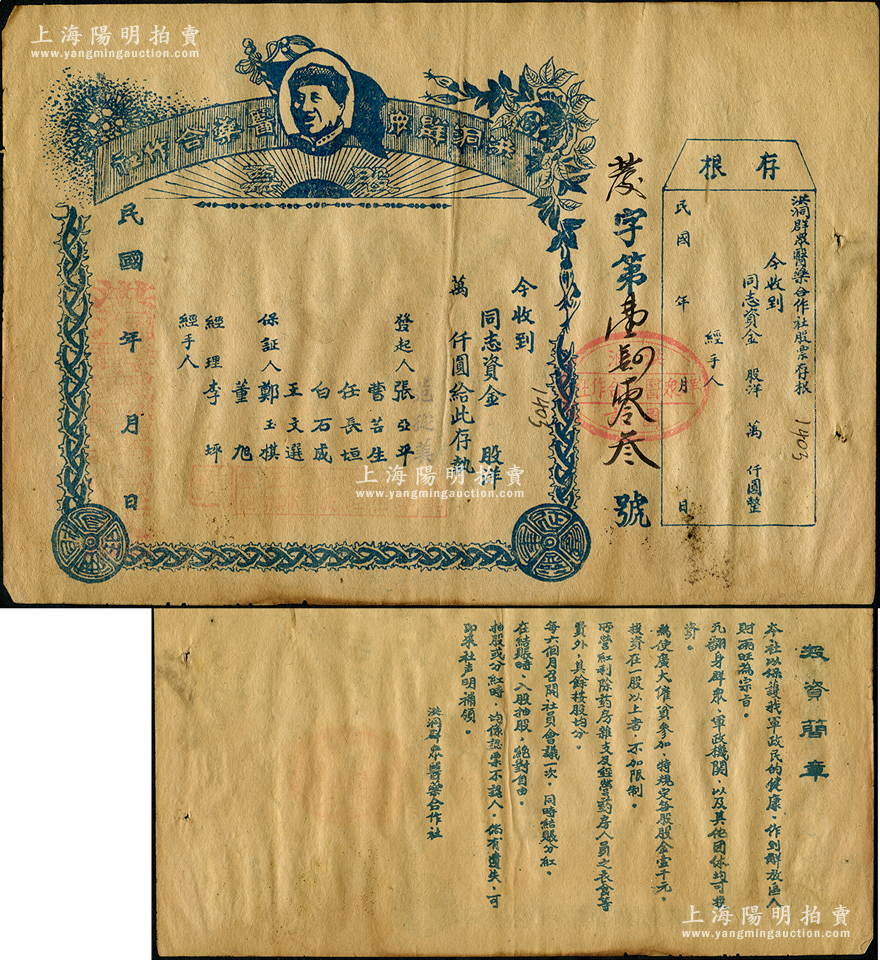 上海陽明拍賣
www.yangmingauction.com
洪洞群眾醫藥合作社
股票
今收到
同志資金 股洋
萬 仟圓給此存執
發起人 張亞平
曹苦生
任長垣
白石成
王文選
保証人 鄭玉祺
董旭
經理 李坪
經手人
民國 年 月 日
1403
發字第壹肆零叁號
存根
洪洞群眾醫藥合作社股票存根
今收到
同志資金 股洋 萬 仟圓整
經手人
民國 年 月 日
1403
上海陽明拍賣
www.yangmingauction.com
投資簡章
本社以保護我軍政民的健康、作到解放區人
財兩旺為宗旨。
凡翻身群眾、軍政機関、以及其他团体均可投
資。
為使廣大僱貧參加、特規定每股股金壹千元。
投資在一股以上者、不加限制。
所營紅利除葯房雜支及經營葯房人員之衣食等
費外、其餘按股均分。
每六個月召開社員會議一次。同時結賬分紅。
在結賬時、入股抽股、絕對自由。
抽股或分紅時、均係認票不認人、倘有遺失、可
即來社声明補領。
洪洞群眾醫藥合作社
上海陽明拍賣
www.yangmingauction.com